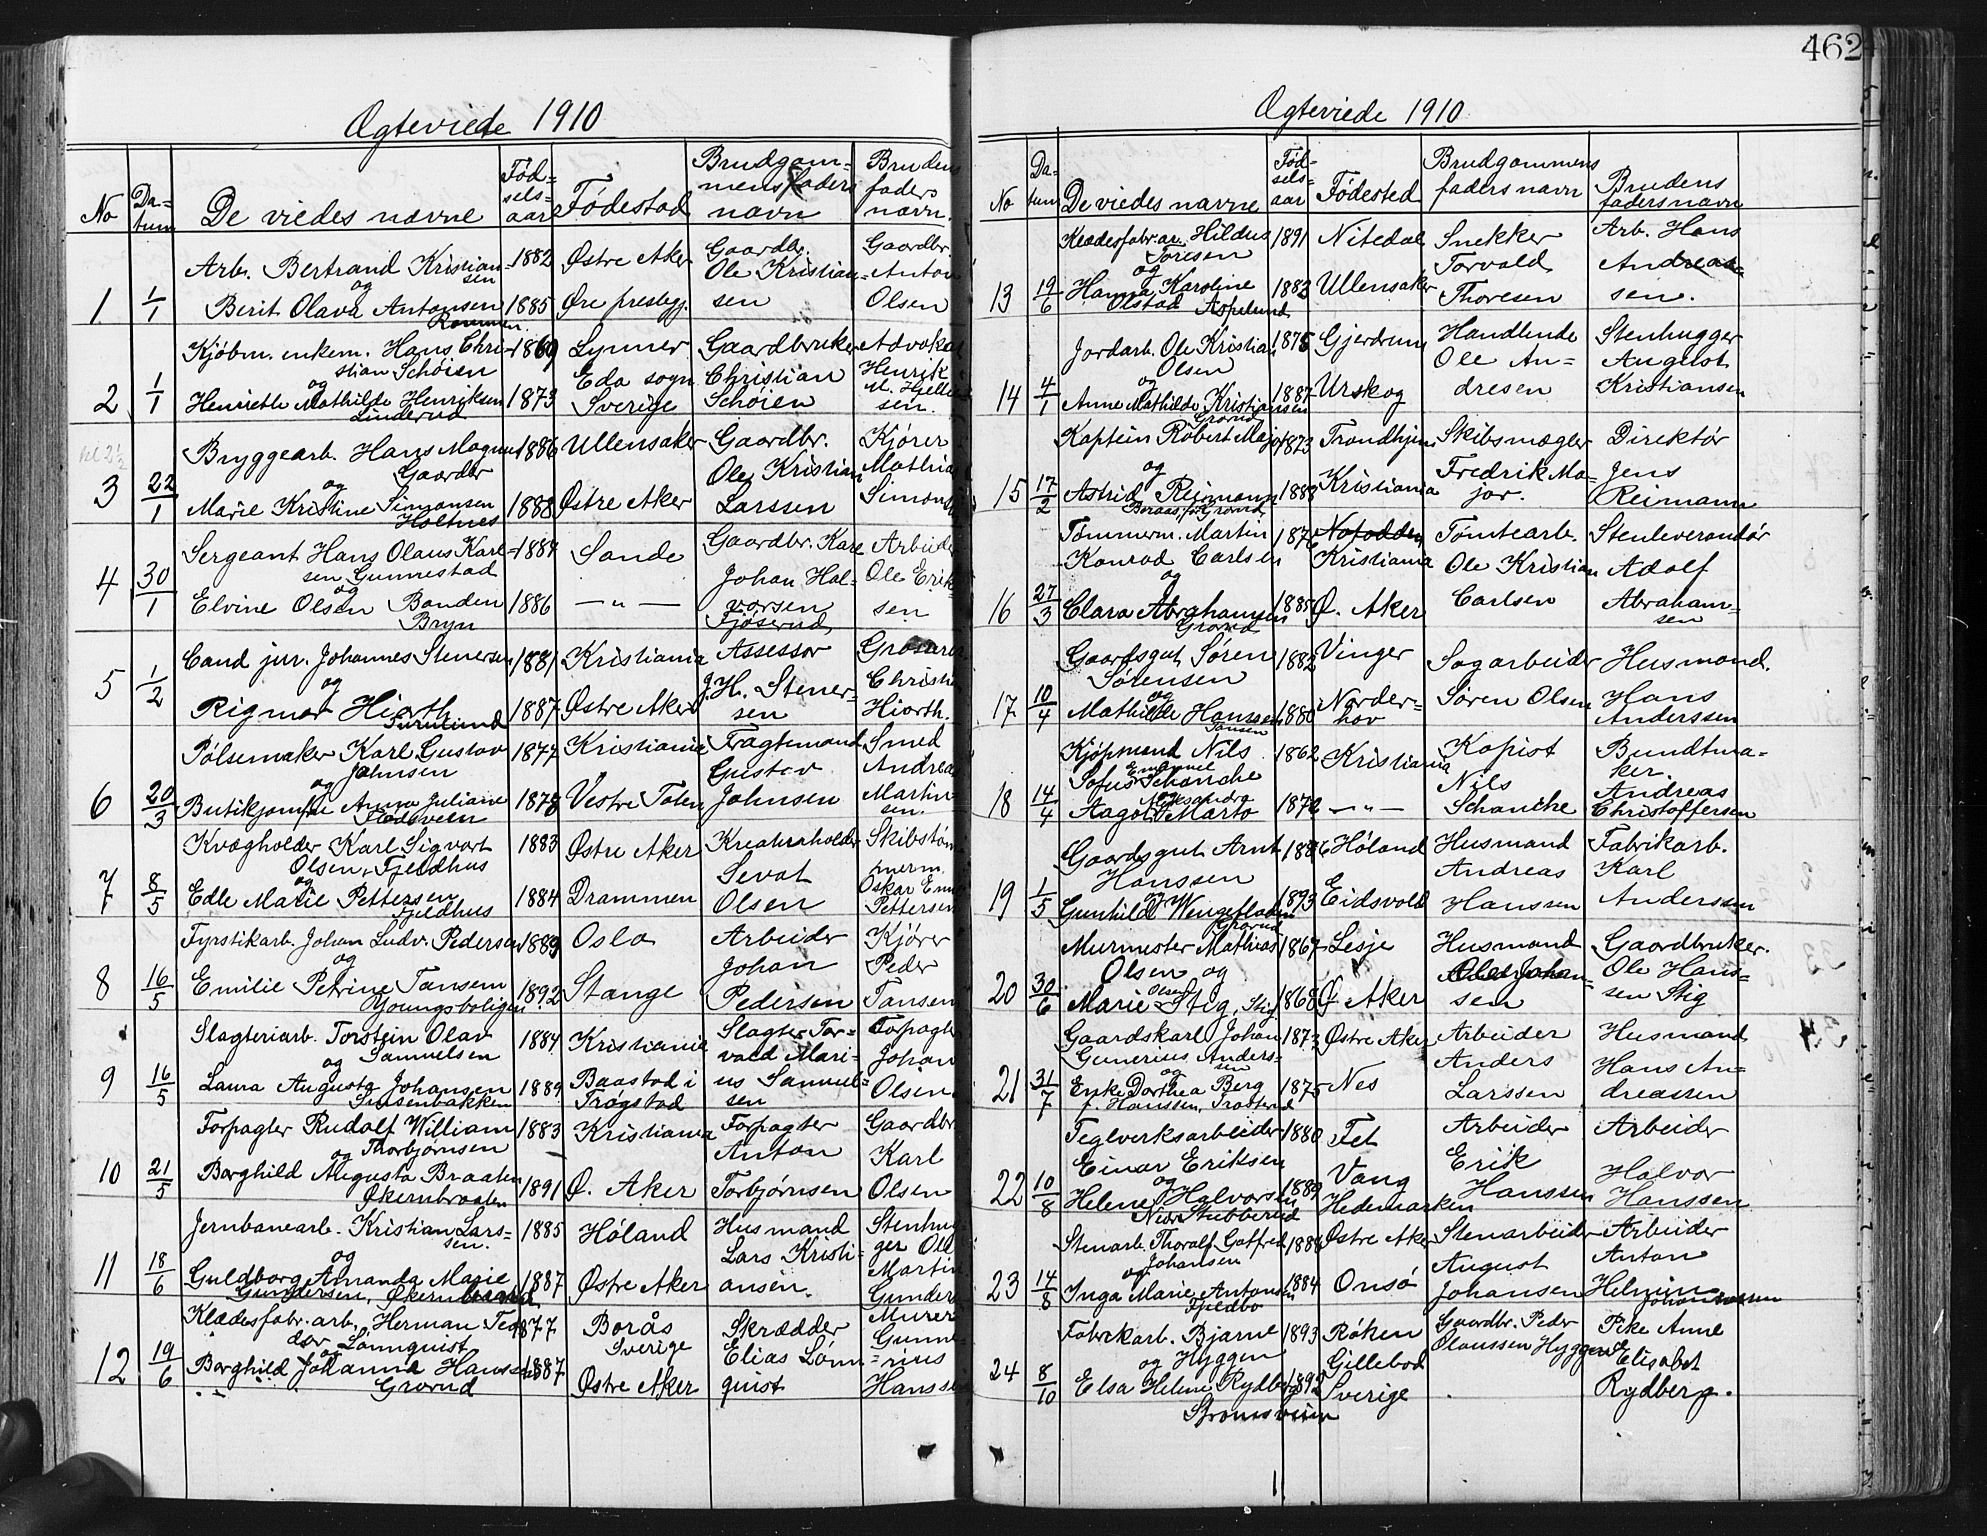 Ægteviede 1910
No
Da-
tum
De viedes navne
Fød-
sels-
aar
Fødested
Brudgom-
mens faders
navn
Brudens
faders
navn.
1
1/1
Arb. Bertrand Kristian-
sen
og
Berit Olava Antonsen
1882
1885
Østre Aker
Øre prestegj.
Gaardbr.
Ole Kristian-
sen
Gaardbr.
Anton
Olsen
2
1/1
Kjøbm. enkem. Hans Chri-
stian Schøien
og
Henriette Mathilde Henriksen
Linderud
1869
1873
Lunner
Eda sogn
Sverige
Gaardbruker
Christian
Schøien
Advokat
Henrik
sen.
3
22/1
Bryggearb. Hans Magnus
Gaarder
og
Marie Kristine Simonsen
Holtnes
1886
1888
Ullensaker
Østre Aker
Gaardbr.
Ole Kristian
Larssen
Kjører
Mathias
Simonsen
4
30/1
Sergeant Hans Olaus Karl-
sen Gunnestad
og
Elvine Olsen Bonden
Bryn
1884
1886
Sande
— " —
Gaardbr. Karl
Johan Hal-
vorsen
Fjøserud
Arbeider
Ole Erik-
sen
5
1/2
Cand jur. Johannes Stenersen
og
Rigmor Hiorth
1881
1887
Kristiania
Østre Aker
Assessor
J. H. Stener-
sen
Grosserer
Christian
Hiorth.
6
20/3
Pølsemaker Karl Gustav
Johnsen
og
Butikjomfru Anna Juliane
1877
1878
Kristiania
Vestre Toten
Fragtemand
Gustav
Johnsen
Smed
Andreas
Martin-
sen.
7
8/5
Kvægholder Karl Sigvart
Olsen, Fjeldhus
og
Edle Marie Pettersen
Fjeldhus
1883
1884
Østre Aker
Drammen
Kreaturholder
Sevat
Olsen
Skibstøm-
merm.
Oskar Emil
Pettersen
8
16/5
Fyrstikarb. Johan Ludv. Pedersen
og
Emilie Petrine Jansen
Youngsboligen
1889
1892
Oslo
Stange
Arbeider
Johan
Pedersen
Kjører
Peder
Jansen
9
16/5
Slagteriarb. Torstein Olav
Samuelsen
og
Laura Augusta Johansen
Sinsenbakken
1884
1889
Kristiania
Baastad i
Trøgstad
Slagter Tor-
vald Mari-
us Samuel-
sen
Forpagter
Johan
Olsen.
10
21/5
Forpagter Rudolf William
Thorbjørnsen
og
Borghild Augusta Braaten
Økernbraaten
1883
1891
Kristiania
Ø. Aker
Forpagter
Anton
Torbjørnsen
Gaardbr.
Karl
Olsen
11
18/6
Jernbanearb. Kristian Lars-
sen.
og
Guldborg Amanda Marie
Gundersen, Økernbraaten
1885
1887
Høland
Østre Aker
Husmand
Lars Kristi-
ansen.
Stenhug-
ger Ole
Martin
Gunders
12
19/6
Klædesfabr. arb. Herman Teo-
dor Lönnquist
og
Borghild Johanna Hanssen
Grorud
1877
1887
Borås
Sverige
Østre Aker
Skrædder
Elias Lönn-
quist
Murer
Gunne-
rius
Hanssen
462
Ægteviede 1910
No
Da-
tum
De viedes navne
Fød-
sels-
aar
Fødested
Brudgommens
faders navn
Brudens
faders navn
13
19/6
Klædesfabr.ar. Hildus
Toresen
og
Hanna Karoline
Olstad Aspelund
1891
1883
Nitedal
Ullensaker
Snekker
Torvald
Thoresen
Arb. Hans
Andreas-
sen.
14
4/1
Jordarb. Ole Kristian
Olsen
og
Anne Mathilde Kristiansen
Grorud
1875
1887
Gjerdrum
Urskog
Handlende
Ole An-
dresen
Stenhugger
August
Kristiansen
15
17/2
Kaptein Robert Major
og
Astrid Reimann
1873
1888
Trondhjem
Kristiania
Skibsmægler
Fredrik Ma-
jor.
Direktør
Jens
Reimann
16
27/3
Tømmerm. Martin
Konrad Carlsen
og
Clara Abrahamsen
Grorud
1876
1885
Notodden
Kristiania
Ø. Aker
Tømtearb.
Ole Kristian
Carlsen
Stenleverandør
Adolf
Abraham-
sen
17
10/4
Gaardsgut Søren
Sørensen
og
Mathilde Hanssen
1882
1880
Vinger
Norder-
hov
Sagarbeider
Søren Olsen
Husmand.
Hans
Anderssen
18
14/4
Kjøpmand Nils
Emanuel
Sofus Schanche
og Aleksandra
Aagot Marto
1862
1872
Kristiania
— " —
Kopist
Nils
Schanche
Bundtma-
ker
Andreas
Christoffersen
19
1/5
Gaardsgut Arnt
Hanssen
og
Gunhild Wengefladen
Grorud
1886
1893
Høland
Eidsvold
Husmand
Andreas
Hanssen
Fabrikarb.
Karl
Anderssen
20
30/6
Murmester Mathias
Olsen og
Olsen
Marie Stig, Stig
1867
1868
Lesje
Ø. Aker
Husmand
Ole Johan-
sen
Gaardbruker.
Ole Hans-
sen Stig
21
31/7
Gaardskarl Johan
Gunerius Anders-
sen
og
Enke Dorthea Berg
f. Hanssen, Trosterud
1873
1875
Østre Aker
Nes
Arbeider
Anders
Larssen
Husmand
Hans An-
dreassen
22
10/8
Teglverksarbeider
Einar Eriksen
og
Helene Halvorsen
Nedr Stubberud
1880
1889
Fet
Vang
Hedemarken
Arbeider
Erik
Hanssen
Arbeider
Halvor
Hanssen
23
14/8
Stenarb. Thoralf Gotfred
Johansen
og
Inga Marie Antonsen
Fjeldbo
1886
1884
Østre Aker
Onsø
Stenarbeider
August
Johansen
Arbeider
Anton
Helmin
Johannessen
24
8/10
Fabrikarb. Bjarne
Hyggen
og
Elsa Helene Rydberg
1893
1892
Røken
Gillebod
Sverige
Gaardbr. Peder
Olaussen Hyggen
Pike Anne
Elisabet
Rydberg.